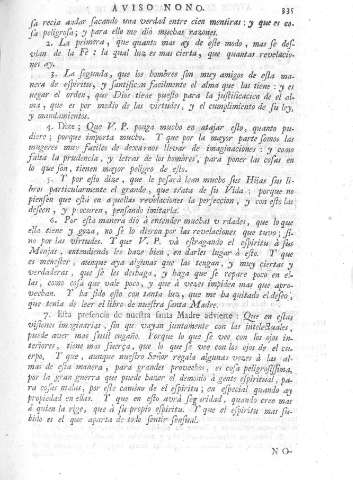 AVISO NONO. 335
sa recia andar sacando una verdad entre cien mentiras: y que es co-
sa peligrosa; y para ello me dió muchas razones.
2. La primera, que quanto mas ay de este modo, mas se des-
vian de la Fè: la qual luz es mas cierta, que quantas revelacio-
nes ay.
3. La segunda, que los hombres son muy amigos de esta ma-
nera de espiritus, y santifican facilmente el alma que las tiene: y es
negar el orden, que Dios tiene puesto para la justificacion de el al-
ma, que es por medio de las virtudes, y el cumplimiento de su ley,
y mandamientos.
4. Dize; Que V. P. ponga mucho en atajar esto, quanto pu-
diere; porque importa mucho. Y que por la mayor parte somos las
mugeres muy faciles de dexarnos llevar de imaginaciones: y como
falta la prudencia, y letras de los hombres, para poner las cosas en
lo que son, tienen mayor peligro de esto.
5. Y por esto dize, que le pesará lean mucho sus Hijas sus li-
bros particularmente el grande, que trata de su Vida; porque no
piensen que está en aquellas revelaciones la perfeccion, y con esto las
deseen, y procuren, pensando imitarla.
6. Por esta manera dió à entender muchas verdades, que lo que
ella tiene y goza, no se lo dieron por las revelaciones que tuvo; si-
no por las virtudes. Y que V. P. và estragando el espiritu à sus
Monjas, entendiendo les haze bien, en darles lugar à esto. Y que
es menester, aunque aya algunas que las tengan, y muy ciertas y
verdaderas, que se les deshaga, y haga que se repare poco en el-
las, como cosa que vale poco, y que à veces impiden mas que apro-
vechan. Y ha sido esto con tanta luz, que me ha quitado el deseo,
que tenia de leer el libro de nuestra santa Madre.
7. Esta presencia de nuestra santa Madre advierte: Que en estas
visiones imaginarias, sin que vayan juntamente con las intelectuales,
puede aver mas sutil engaño. Porque lo que se vee con los ojos in-
teriores, tiene mas fuerça, que lo que se vee con los ojos de el cu-
erpo. Y que, aunque nuestro Señor regala algunas vezes à las al-
mas de esta manera, para grandes provechos, es cosa peligrosissima,
por la gran guerra que puede hazer el demonio à gente espiritual, pa-
ra cosas malas, por este camino de el espiritu, en especial quando ay
propiedad en ellas. Y que en esto avrà seguridad, quando cree mas
à quien la rige, que à su propio espiritu. Y que el espiritu mas su-
bido es el que aparta de todo sentir sensual.
NO-